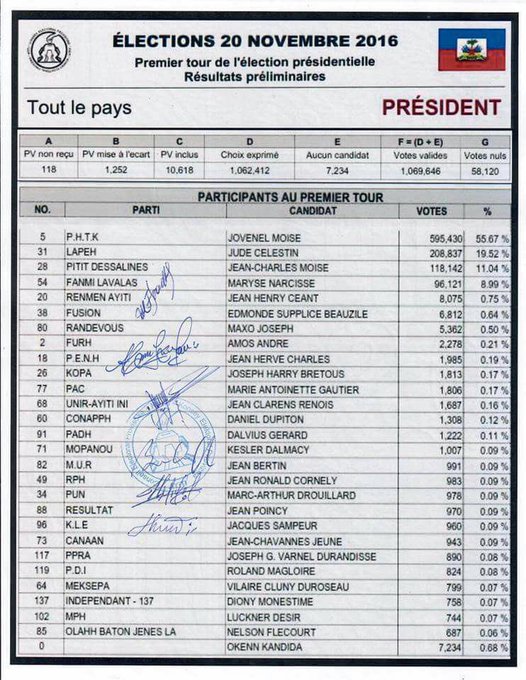 ÉLECTIONS 20 NOVEMBRE 2016
Premier tour de l'élection présidentielle
Résultats préliminaires
Tout le pays PRÉSIDENT
A B C D E F = (D + E) G
PV non reçu PV mise à l'ecart PV inclus Choix exprimé Aucun candidat Votes valides Votes nuls
118 1,252 10,618 1,062,412 7,234 1,069,646 58,120
PARTICIPANTS AU PREMIER TOUR
NO. PARTI CANDIDAT VOTES %
5 P.H.T.K JOVENEL MOISE 595,430 55.67 %
31 LAPEH JUDE CELESTIN 208,837 19.52 %
28 PITIT DESSALINES JEAN-CHARLES MOISE 118,142 11.04 %
54 FANMI LAVALAS MARYSE NARCISSE 96,121 8.99 %
20 RENMEN AYITI JEAN HENRY CEANT 8,075 0.75 %
38 FUSION EDMONDE SUPPLICE BEAUZILE 6,812 0.64 %
80 RANDEVOUS MAXO JOSEPH 5,362 0.50 %
2 FURH AMOS ANDRE 2,278 0.21 %
18 P.E.N.H JEAN HERVE CHARLES 1,985 0.19 %
26 KOPA JOSEPH HARRY BRETOUS 1,813 0.17 %
77 PAC MARIE ANTOINETTE GAUTIER 1,806 0.17 %
68 UNIR-AYITI INI JEAN CLARENS RENOIS 1,687 0.16 %
60 CONAPPH DANIEL DUPITON 1,308 0.12 %
91 PADH DALVIUS GERARD 1,222 0.11 %
71 MOPANOU KESLER DALMACY 1,007 0.09 %
82 M.U.R JEAN BERTIN 991 0.09 %
49 RPH JEAN RONALD CORNELY 983 0.09 %
34 PUN MARC-ARTHUR DROUILLARD 978 0.09 %
88 RESULTAT JEAN POINCY 970 0.09 %
96 K.L.E JACQUES SAMPEUR 960 0.09 %
73 CANAAN JEAN-CHAVANNES JEUNE 943 0.09 %
117 PPRA JOSEPH G. VARNEL DURANDISSE 890 0.08 %
119 P.D.I ROLAND MAGLOIRE 824 0.08 %
64 MEKSEPA VILAIRE CLUNY DUROSEAU 799 0.07 %
137 INDEPENDANT - 137 DIONY MONESTIME 758 0.07 %
102 MPH LUCKNER DESIR 744 0.07 %
85 OLAHH BATON JENES LA NELSON FLECOURT 687 0.06 %
0 OKENN KANDIDA 7,234 0.68 %